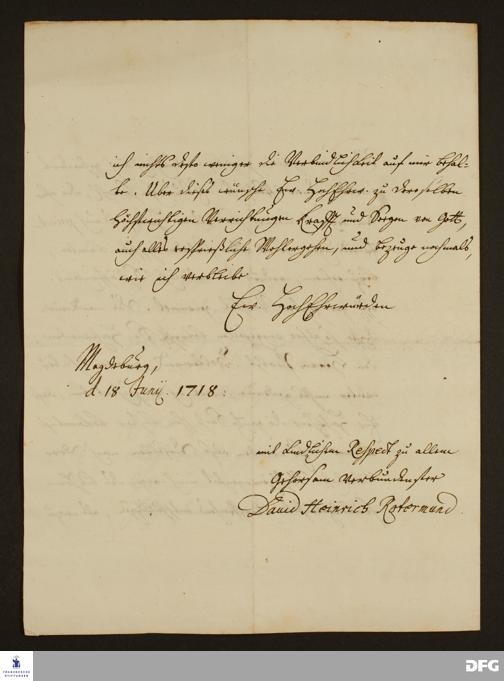 ich nichts desto weniger die Verbindlichkeit auf mir behal-
te. Über dieses wünsche Ew. HochEhrw. zu deroselben
hochwichtigen Verrichtungen Krafft und Seegen von Gott,
auch alles ersprießliche Wohlergehen, und bezeuge nochmals,
wie ich verbleibe
Ew. HochEhrwürden
Magdeburg,
d. 18 Junij. 1718.
mit kindlichem Respect zu allem
Gehorsam verbundenster
David Heinrich Rotermund.
FRANCKESCHE
STIFTUNGEN
DFG